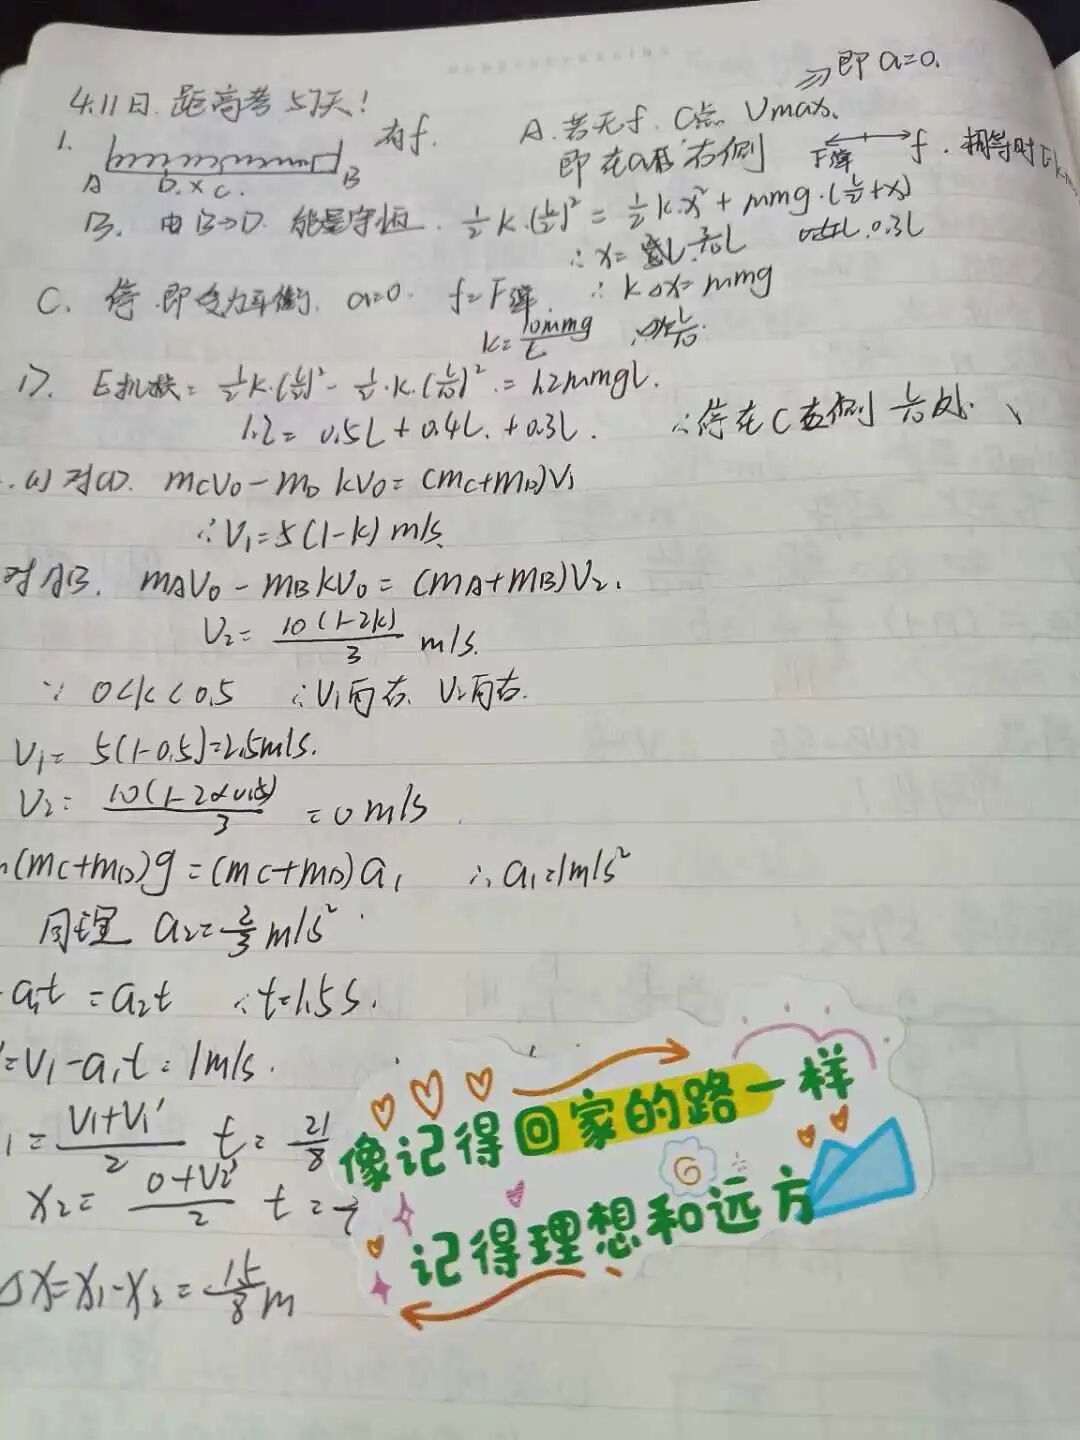 ⇒即a=0.
4.11日.距高考57天!
1. 有f. A.若无f.C点 Vmax.
A D.x C. B 即在C右侧 F弹 f.相等时
B. 由B→D.能量守恒. ½k·(L/2)²=½k·x²+μmg·(L/2+x)
∴x=3/10L 0.3L
C. 停.即受力平衡. a=0. f=F弹. ∴k△x=μmg
k=10μmg/L
D. E机损=½k·(L/2)²-½·k·(L/10)²=1.2μmgL.
1.2=0.5L+0.4L.+0.3L. ∴停在C右侧 L/10处.
.(1)对CD. mcv₀-mD kv₀=(mc+mD)v₁
∴v₁=5(1-k)m/s.
对AB. mAv₀-mBkv₀=(mA+mB)v₂.
v₂=10(1-2k)/3 m/s.
∵0<k<0.5 ∴v₁向右.v₂向右.
v₁=5(1-0.5)=2.5m/s.
v₂=10(1-2×0.5)/3=0m/s
(mc+mD)g=(mc+mD)a₁ ∴a₁=1m/s²
同理 a₂=2/3 m/s²
-a₁t=a₂t ∴t=1.5s.
'=v₁-a₁t=1m/s.
₁=(v₁+v₁')/2 t=21/8
x₂=(0+v₂')/2 t=
△x=x₁-x₂=15/8m
像记得回家的路一样
记得理想和远方